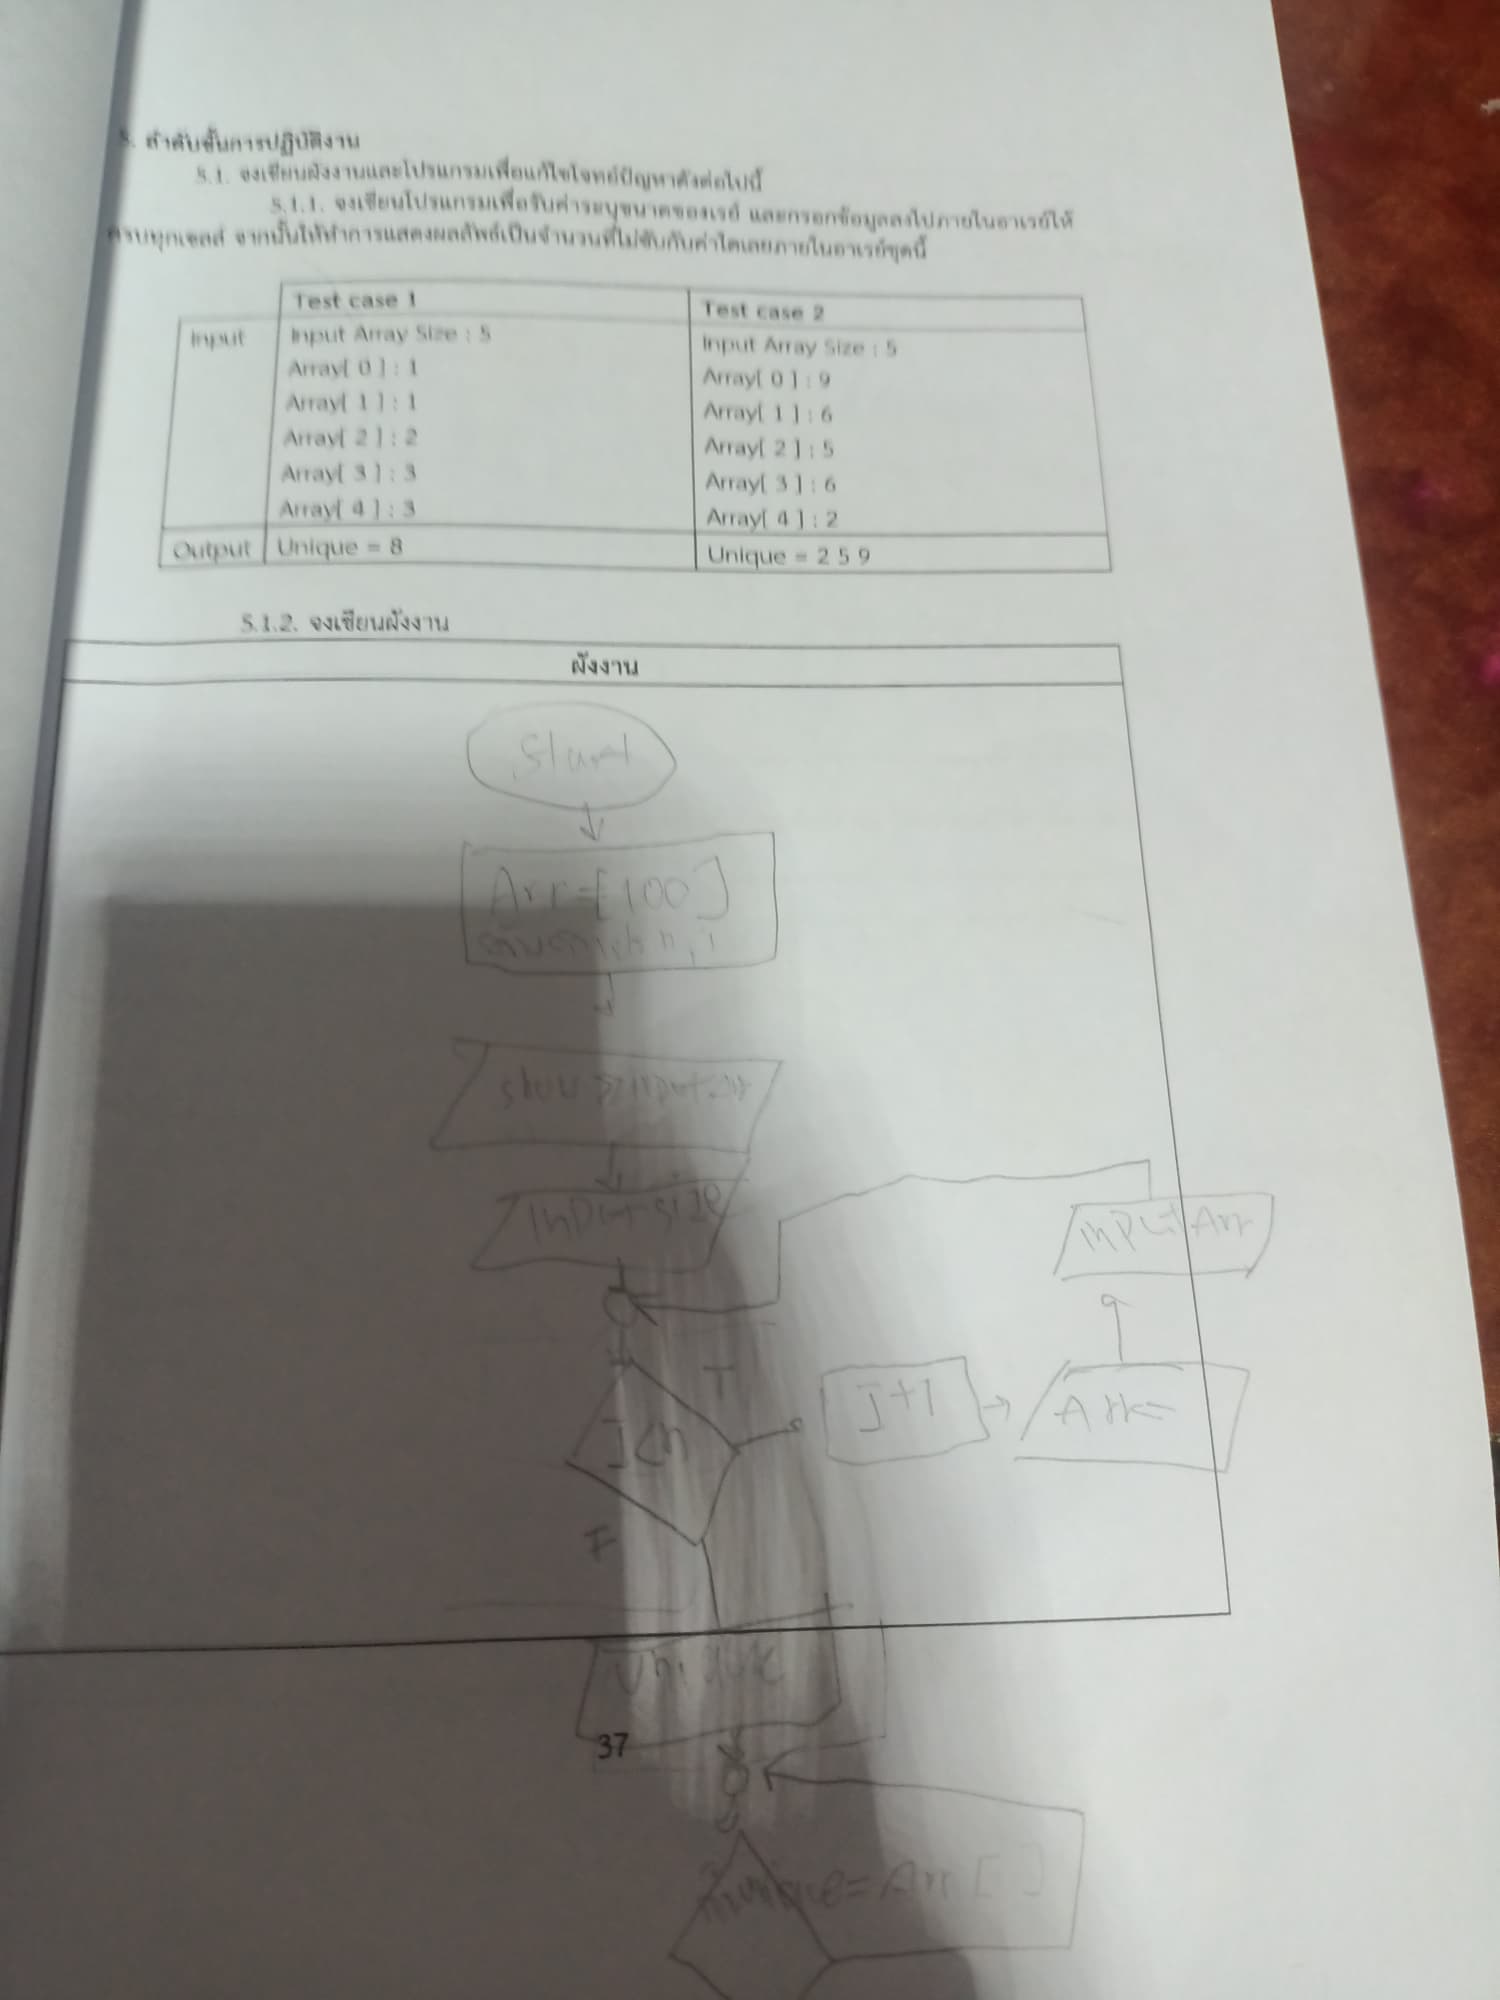 5. ลำดับขั้นการปฏิบัติงาน
5.1. จงเขียนผังงานและโปรแกรมเพื่อแก้ไขโจทย์ปัญหาดังต่อไปนี้
5.1.1. จงเขียนโปรแกรมเพื่อรับค่าระบุขนาดของเรย์ และกรอกข้อมูลลงไปภายในอาเรย์ให้
ครบทุกเซลล์ จากนั้นให้ทำการแสดงผลลัพธ์เป็นจำนวนที่ไม่ซ้ำกับค่าใดเลยภายในอาเรย์ชุดนี้
Test case 1
Test case 2
Input
Input Array Size : 5
Array[ 0 ] : 1
Array[ 1 ] : 1
Array[ 2 ] : 2
Array[ 3 ] : 3
Array[ 4 ] : 3
Input Array Size : 5
Array[ 0 ] : 9
Array[ 1 ] : 6
Array[ 2 ] : 5
Array[ 3 ] : 6
Array[ 4 ] : 2
Output
Unique = 8
Unique = 2 5 9
5.1.2. จงเขียนผังงาน
ผังงาน
Start
Arr=[100]
input size
input Arr
T
J<n
J+1
Arr=
F
37
= Arr [ ]